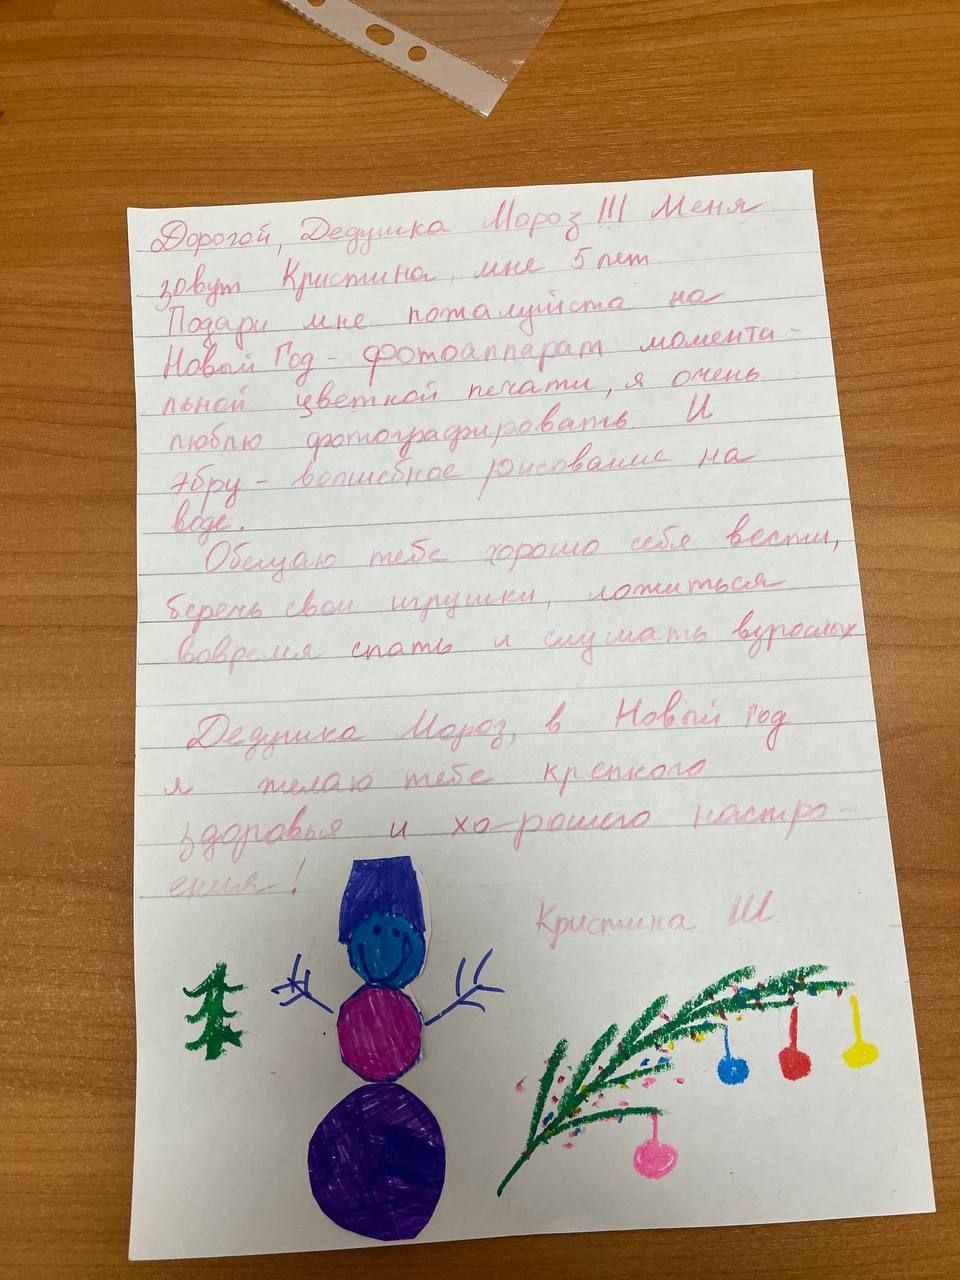 Дорогой, Дедушка Мороз!!! Меня
зовут Кристина, мне 5 лет.
Подари мне пожалуйста на
Новый Год - фотоаппарат момента-
льной цветной печати, я очень
люблю фотографировать. И
эбру - волшебное рисование на
воде.
Обещаю тебе хорошо себя вести,
беречь свои игрушки, ложиться
вовремя спать и слушать взрослых
Дедушка Мороз, в Новый год
я желаю тебе крепкого
здоровья и хорошего настро-
ения!
Кристина Ш.